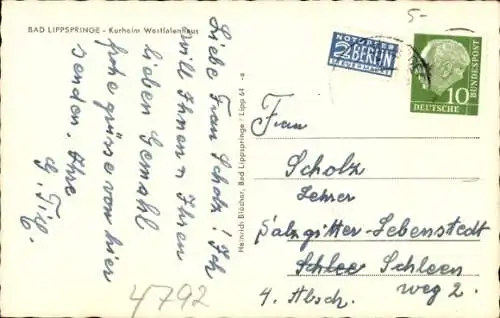 BAD LIPPSPRINGE - Kurheim Westfalenhaus
Liebe Frau Scholz! Ich
will Ihnen u Ihren
lieben Gemahl
frohe grüsse von hier
senden. Ihre
G.
4792
Heinrich Blücher, Bad Lippspringe / Lipp 64
5-
NOTOPFER
2 BERLIN
STEUERMARKE
DEUTSCHE
BUNDESPOST
10
Frau
Scholz
Lehrer
Salzgitter-Lebenstedt
Schlee Schleen
weg 2.
4. Absch.